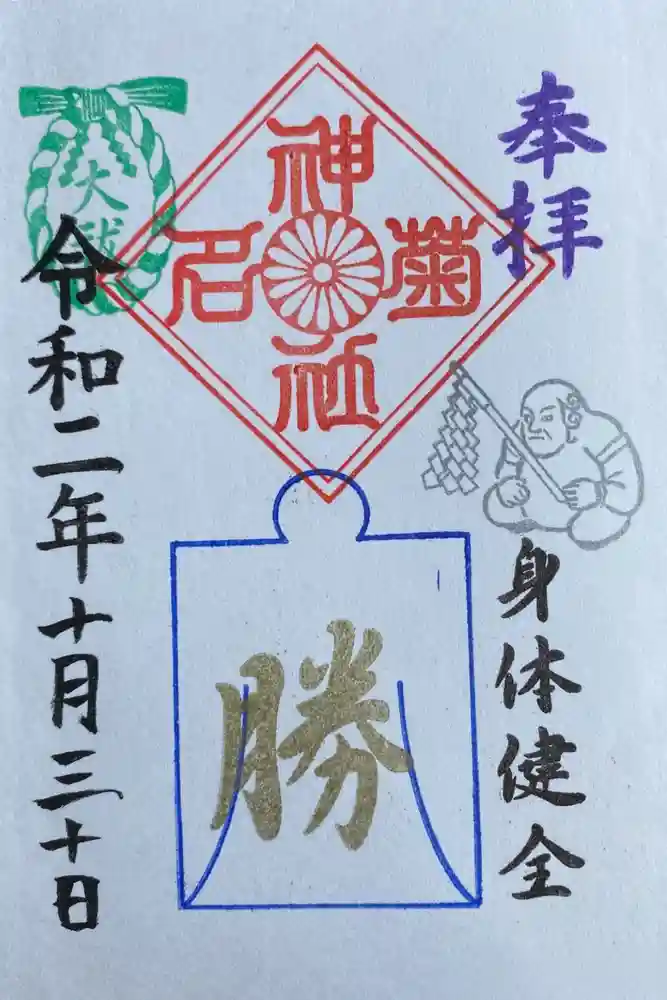 奉拝
身体健全
菊名神社
勝
大
令和二年十月三十日